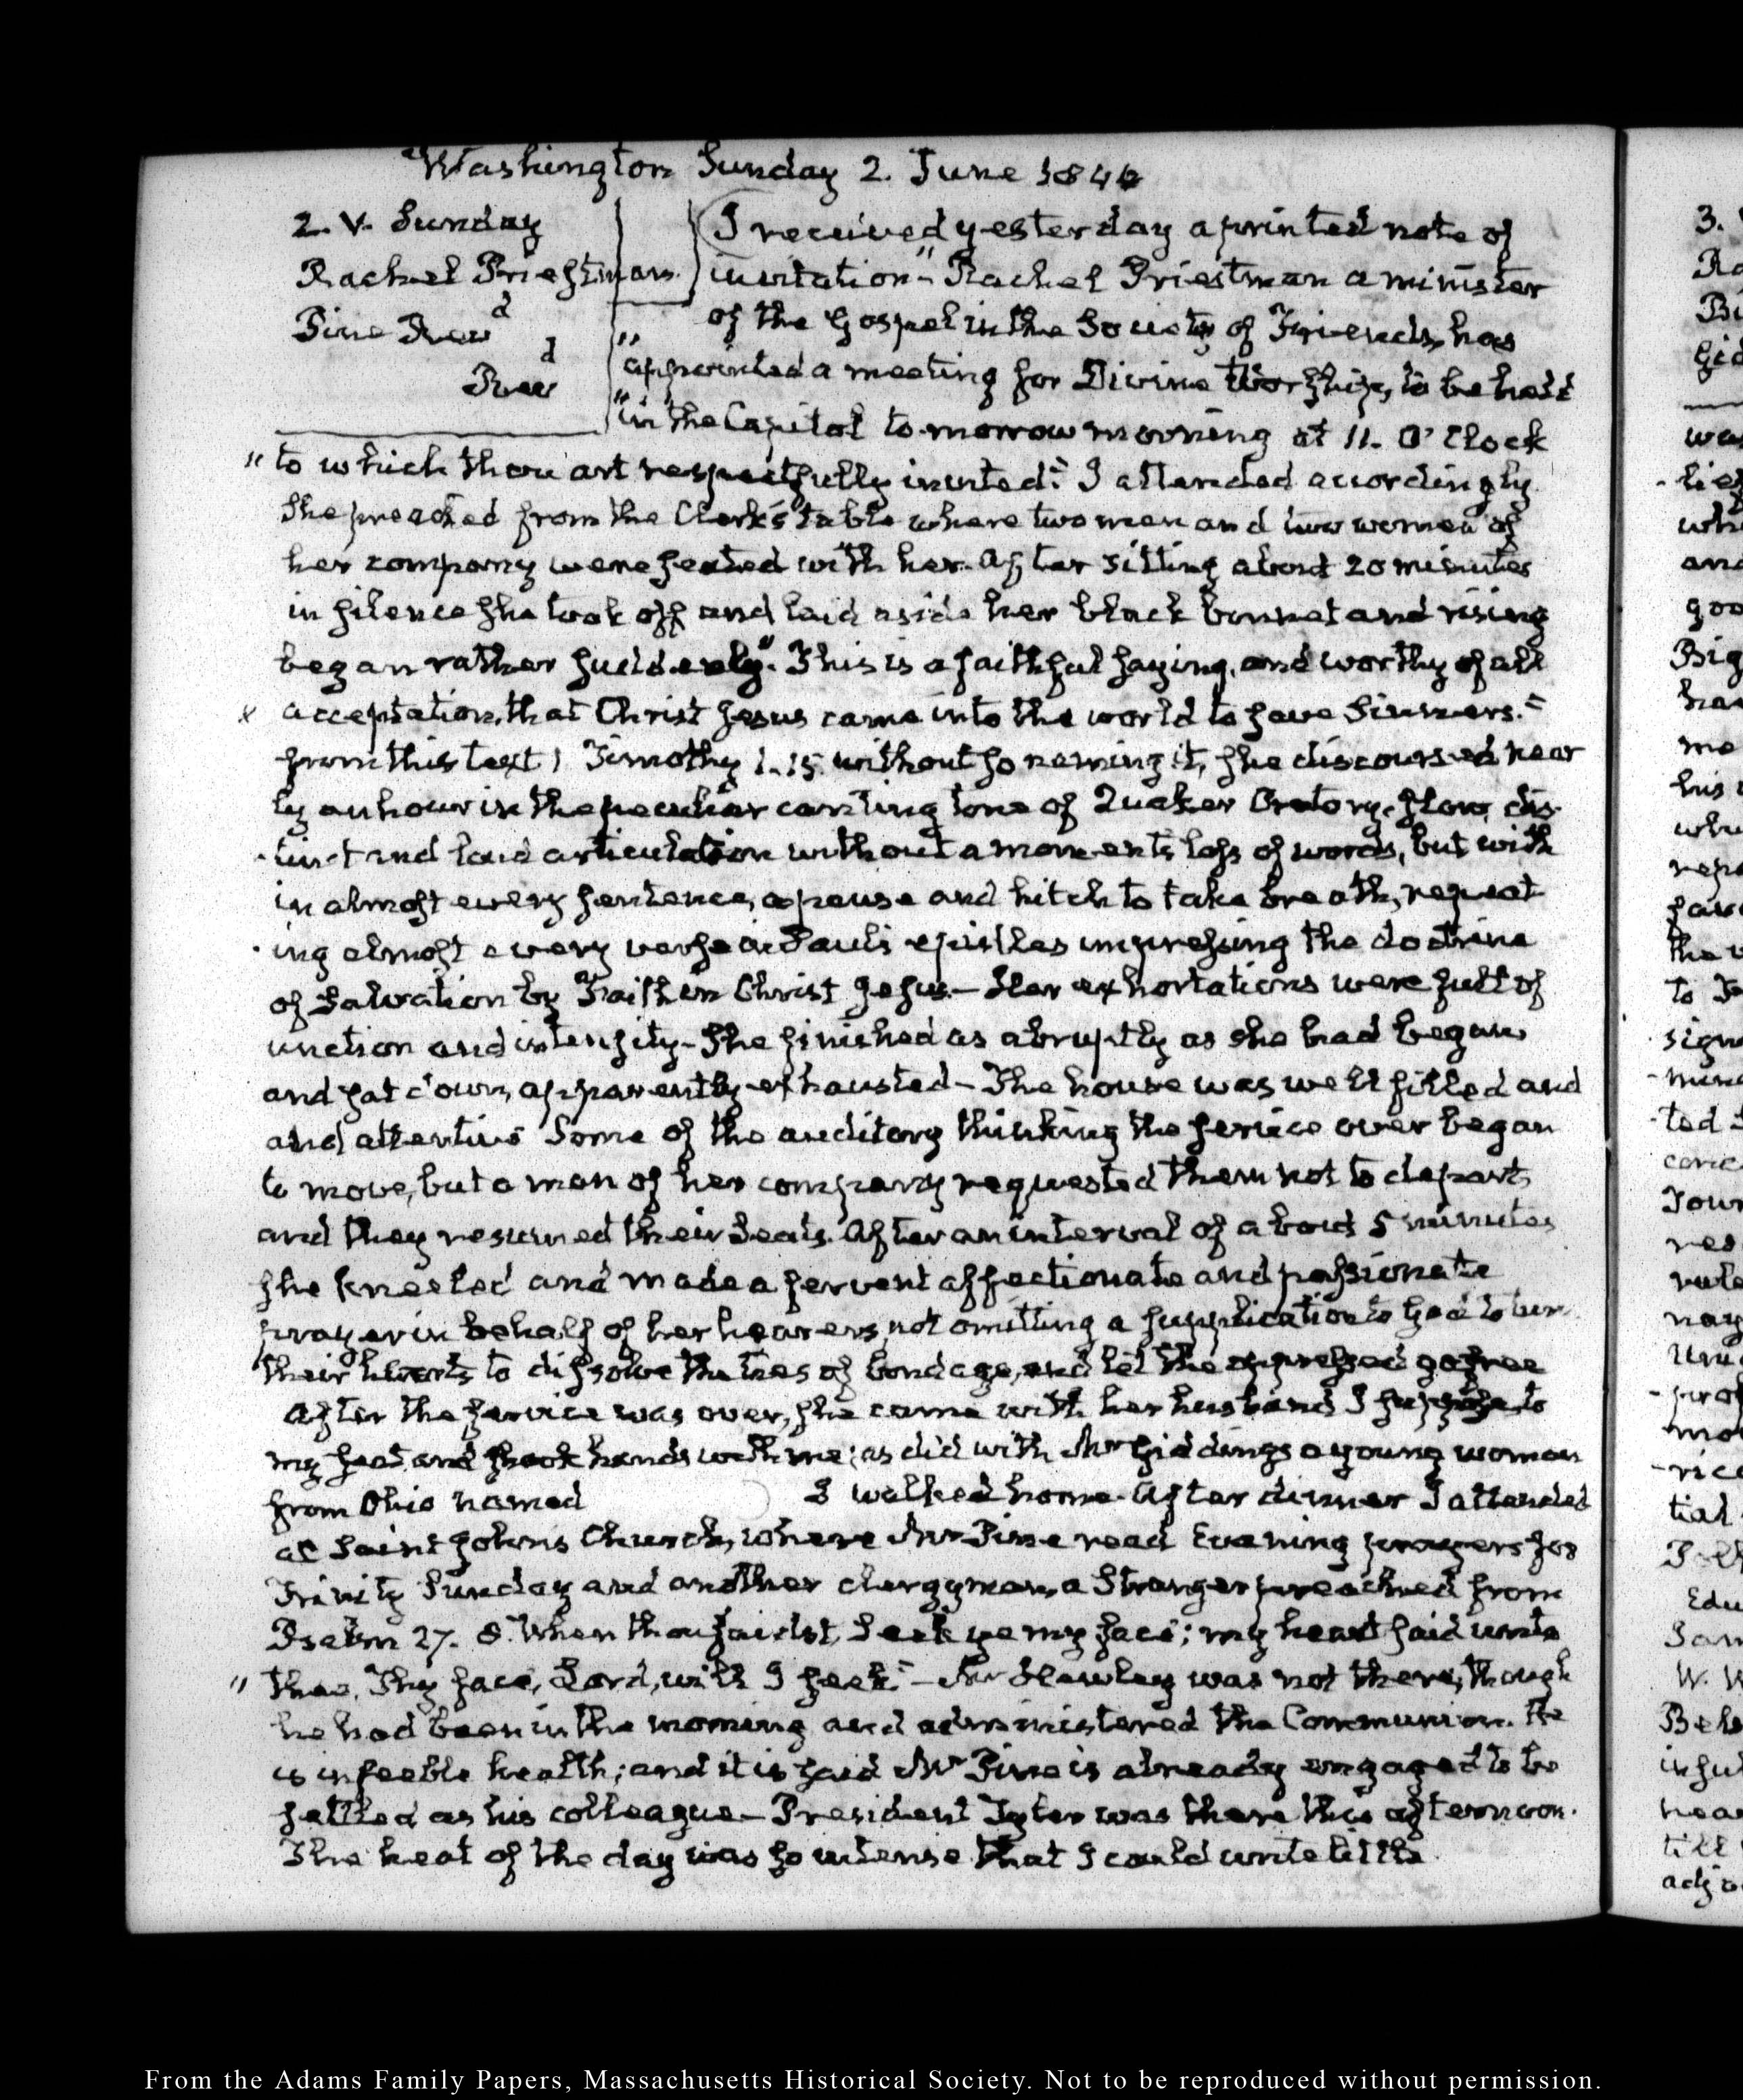 Washington Sunday 2. June 1844
2. V. Sunday
Rachel Priestman.
Pine Revd
Revd
I received yesterday a printed note of
invitation "Rachel Priestman a minister
" of the Gospel in the Society of Friends, has
"appointed a meeting for Divine Worship, to be held
"in the Capitol to-morrow morning at 11. O'Clock
"to which thou art respectfully invited." I attended accordingly.
She preached from the Clerk's table where two men and two women of
her company were seated with her. After sitting about 20 minutes
in silence she took off and laid aside her black bonnet and rising
began rather suddenly. "This is a faithful saying, and worthy of all
acceptation, that Christ Jesus came into the world to save Sinners."
from this text 1 Timothy 1.15. without so naming it, she discoursed near
ly an hour in the peculiar canting tone of Quaker Oratory, slow, dis-
-tinct and loud articulation without a moment's loss of words, but with
in almost every sentence, a pause and hitch to take breath, repeat
-ing almost every verse in Paul's epistles impressing the doctrine
of Salvation by Faith in Christ Jesus.— Her exhortations were full of
unction and intensity— She finished as abruptly as she had began,
and sat down, apparently exhausted— The house was well filled and
and attentive Some of the auditory thinking the service over began
to move, but a man of her company requested them not to depart,
and they resumed their Seats. After an interval of about 5 minutes
she kneeled and made a fervent affectionate and passionate
prayer in behalf of her hearers, not omitting a supplication to God to turn
their hearts to dissolve the ties of bondage, and let the oppressed go free
After the service was over, she came with her husband I suppose to
my seat and shook hands with me; as did with Mr Giddings a young woman
from Ohio named I walked home. After dinner I attended
at Saint John's Church, where Mr Pine read Evening prayers for
Trinity Sunday and another clergyman, a Stranger preached from
Psalm 27. 8. "When thou saidst, Seek ye my face; my heart said unto
" thee, Thy face, Lord, will I seek."— Mr Hawley was not there, though
he had been in the morning and administered the Communion. He
is in feeble health; and it is said Mr Pine is already engaged to be
settled as his colleague— President Tyler was there this afternoon.
The heat of the day was so intense that I could write little.
3.
Ra
Bi
Gid
was
good
Big
me
his
to
sign
ted
Jour
nay
-pro
tial
Edu
Sam
W. W
Beh
hea
till
From the Adams Family Papers, Massachusetts Historical Society. Not to be reproduced without permission.